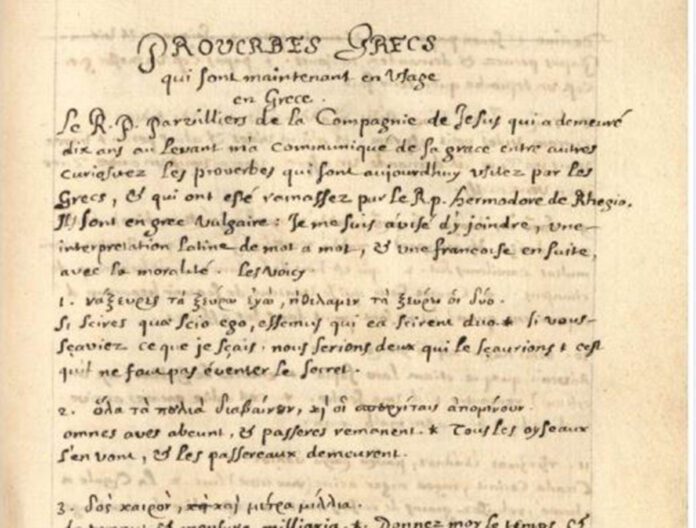 PROUERBES GRECS
qui sont maintenant en Vsage
en Grece.
Le R. P. Parvilliers de la Compagnie de Jesus qui a demeuré
dix ans au Levant m'a Communiqué de sa grace entre autres
curiositez les proverbes qui sont aujourdhuy usitez par les
Grecs, & qui ont esté ramassez par le R. p. hermodore de Rhegio.
Ils sont en grec Vulgaire : Je me suis avisé d'y joindre, une
interpretation Latine de mot a mot, & une francoise en suite,
avec la moralité. Les voicy
1. νἄξευρες τὰ ξεύρω ἐγὼ, ἠθέλαμεν τὰ ξεύρω οἱ δύο.
Si scires quæ scio ego, essemus qui ea scirent duo. * si vous
sçaviez ce que je sçais. nous serions deux qui le sçaurions * c'est
qu'il ne faut pas éventer le secret.
2. ὅλα τὰ πουλιὰ διαβαίνουν, κὶ οἱ ἀπομένουν.
omnes aves abeunt, & passeres remanent. * Tous les oyseaux
s'en vont, & les passereaux demeurent.
3. δὸς καιρὸν, καὶ μέτρα μίλλια.
da tempus & mensura milliaria. *. Donnez moy le temps, &